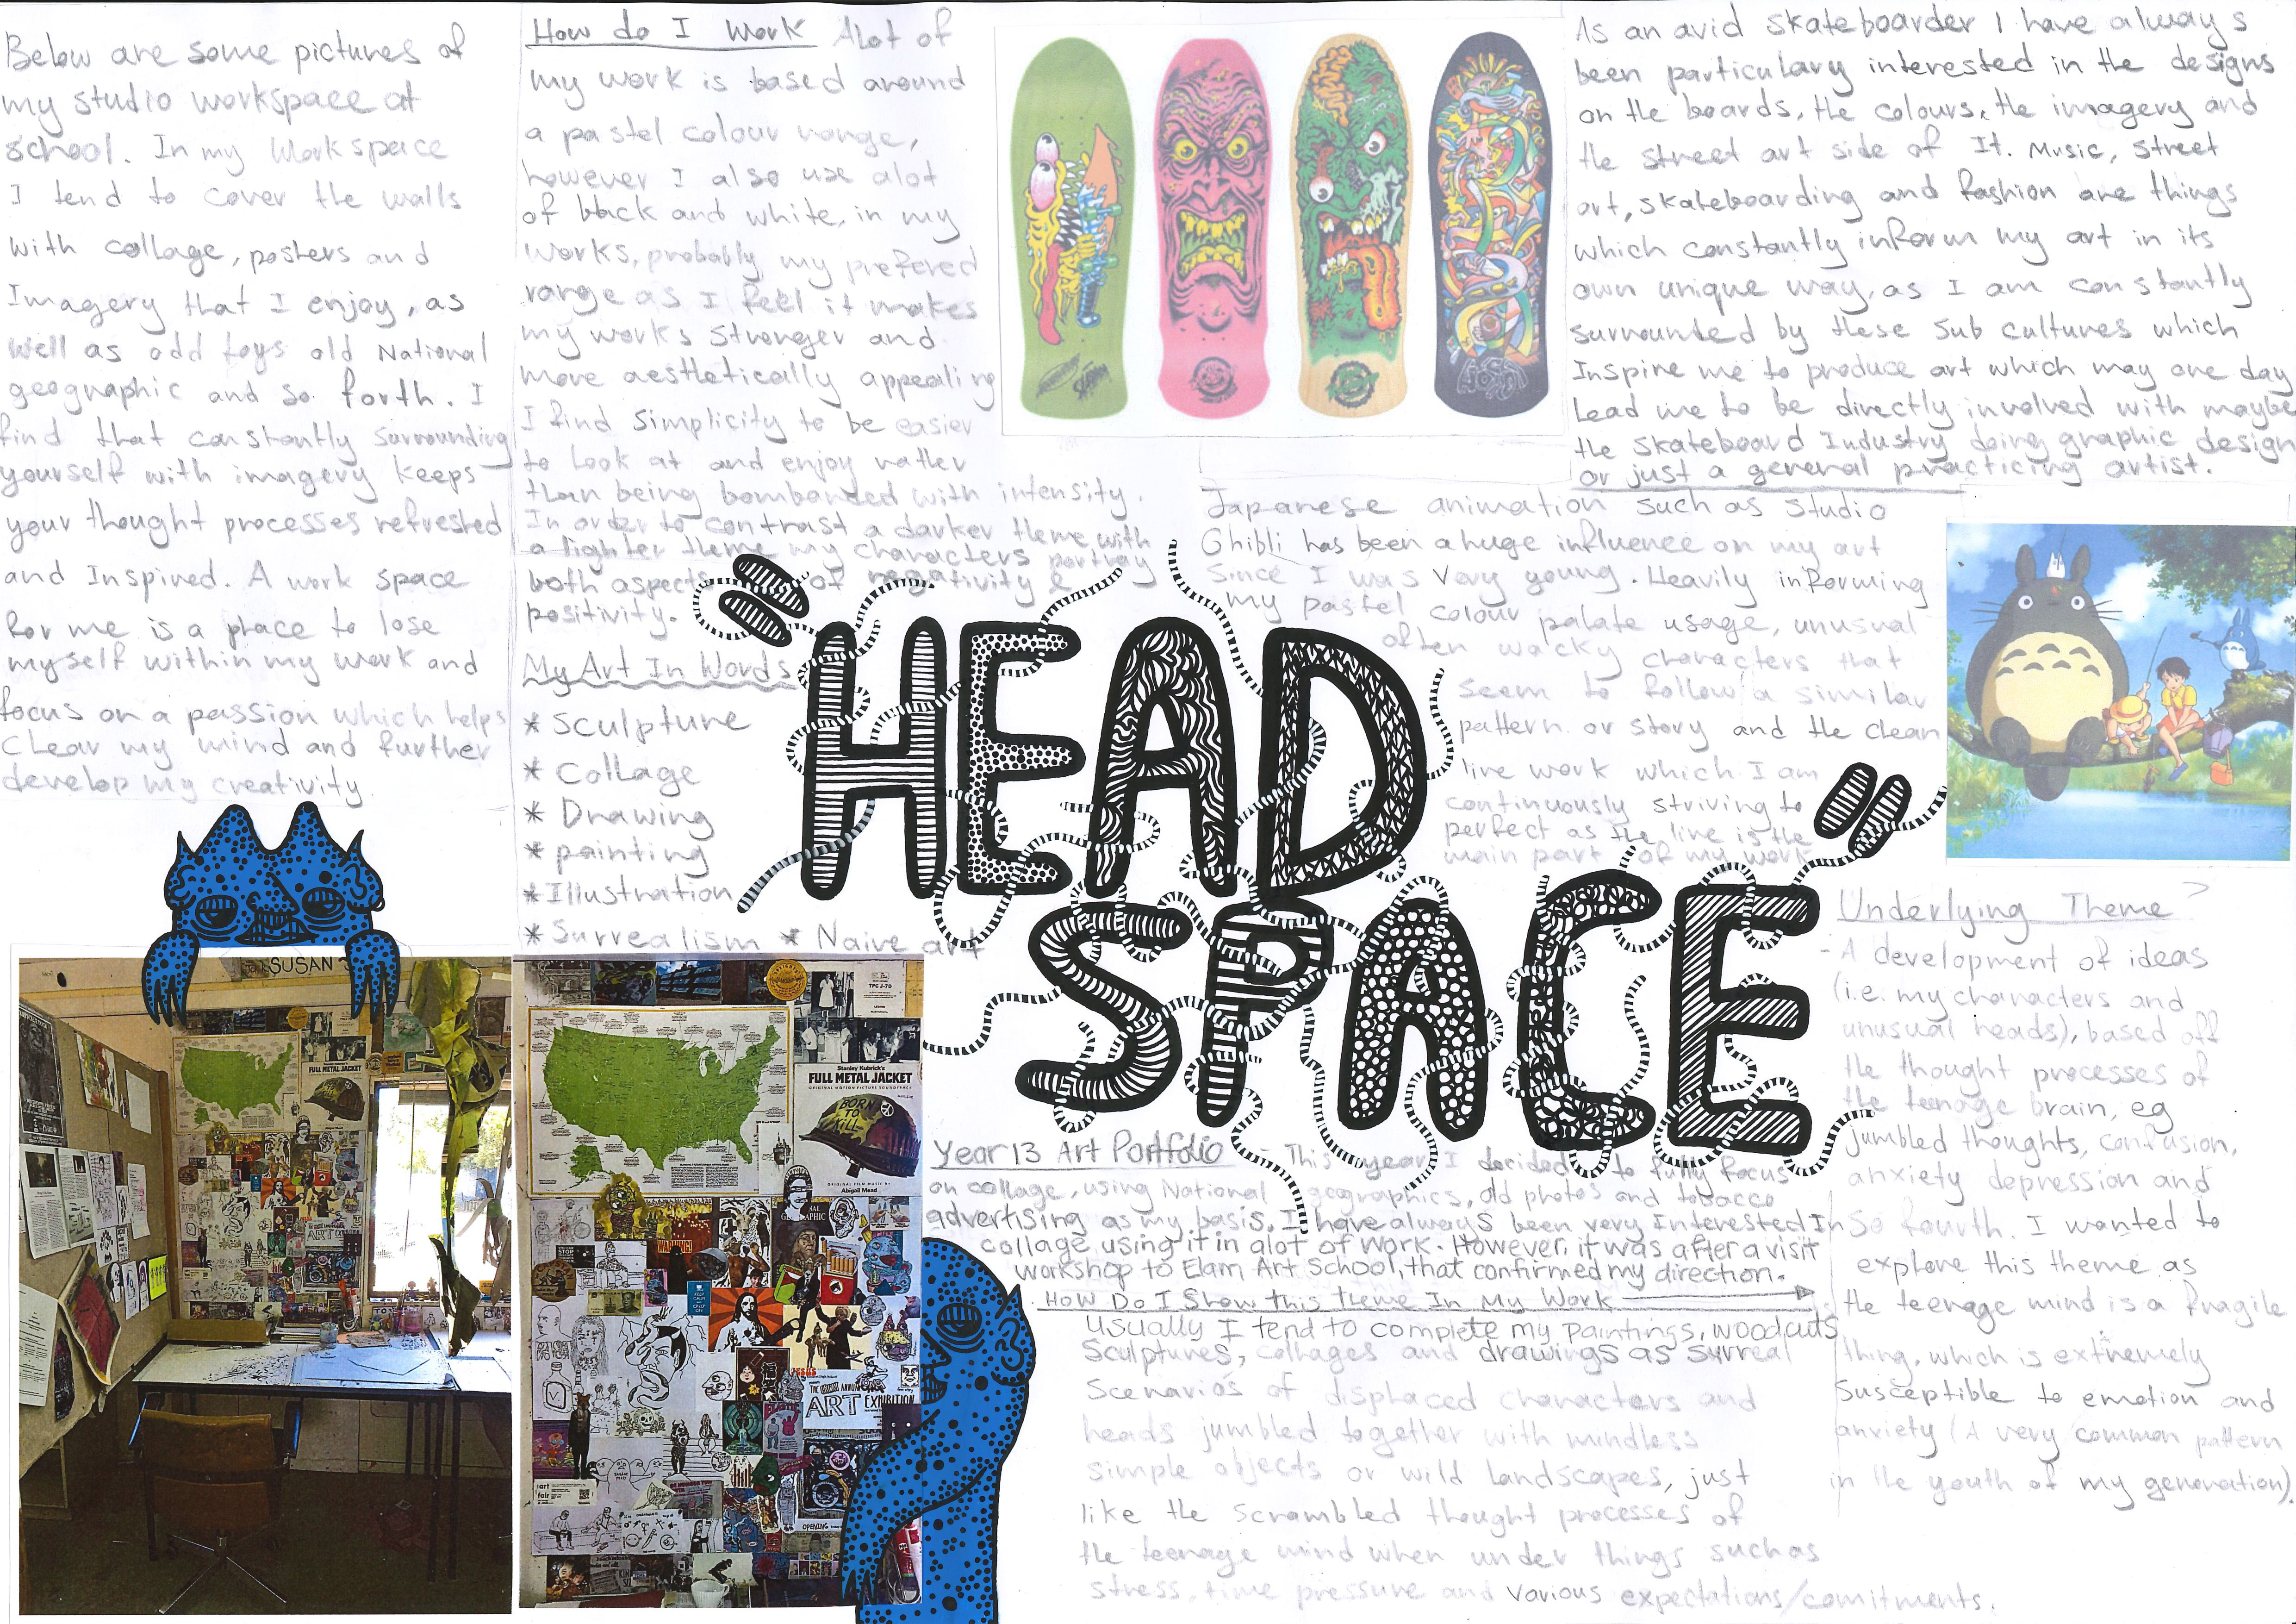 Below are some pictures of
my studio workspace at
school. In my Workspace
I tend to cover the walls
with collage, posters and
Imagery that I enjoy, as
well as odd toys old National
geographic and so forth. I
find that constantly surrounding
yourself with imagery keeps
your thought processes refreshed
and Inspired. A work space
for me is a place to lose
myself within my work and
focus on a passion which helps
clear my mind and further
develop my creativity.
How do I Work Alot of
my work is based around
a pastel colour range,
however I also use alot
of black and white, in my
works, probably my prefered
range as I feel it makes
my works stronger and
more aesthetically appealing
I find simplicity to be easier
to look at and enjoy rather
than being bombarded with intensity.
In order to contrast a darker theme with
a lighter theme my characters portray
both aspects of negativity &
positivity.
My Art In Words
* Sculpture
* Collage
* Drawing
* painting
* Illustration
* Surrealism * Naive art
As an avid skateboarder I have always
been particulary interested in the designs
on the boards, the colours, the imagery and
the street art side of It. Music, street
art, skateboarding and fashion are things
which constantly inform my art in its
own unique way, as I am constantly
surrounded by these sub cultures which
Inspire me to produce art which may one day
Lead me to be directly involved with maybe
the skateboard Industry doing graphic design
or just a general practicing artist.
Japanese animation such as studio
Ghibli has been a huge influence on my art
since I was very young. Heavily informing
my pastel colour palate usage, unusual
often wacky characters that
seem to follow a similar
pattern or story and the clean
line work which I am
continuously striving to
perfect as the line is the
main part of my work
"HEAD
SPACE"
Underlying Theme
- A development of ideas
(i.e. my characters and
unusual heads), based off
the thought processes of
the teenage brain, eg
jumbled thoughts, confusion,
anxiety depression and
So fourth. I wanted to
explore this theme as
the teenage mind is a fragile
thing, which is extremely
Susceptible to emotion and
anxiety (A very common pattern
in the youth of my generation).
Year 13 Art Portfolio - This year I decided to fully focus
on collage, using National geographics, old photos and tobacco
advertising as my basis. I have always been very Interested In
collage using it in alot of work. However, it was after a visit
workshop to Elam Art School, that confirmed my direction.
How Do I Show this theme In My Work
Usually I tend to complete my paintings, woodcuts
Sculptures, collages and drawings as surreal
Scenarios of displaced characters and
heads jumbled together with mindless
simple objects or wild landscapes, just
like the scrambled thought processes of
the teenage mind when under things such as
stress, time pressure and various expectations/comitments.
SUSAN
FULL METAL JACKET
ART
TPC J-70
Stanley Kubrick's
FULL METAL JACKET
ORIGINAL MOTION PICTURE SOUNDTRACK
BORN
TO
KILL
ORIGINAL FILM MUSIC BY
Abigail Mead
WARNING!
ART EXHIBITION
art
fair
OPENING